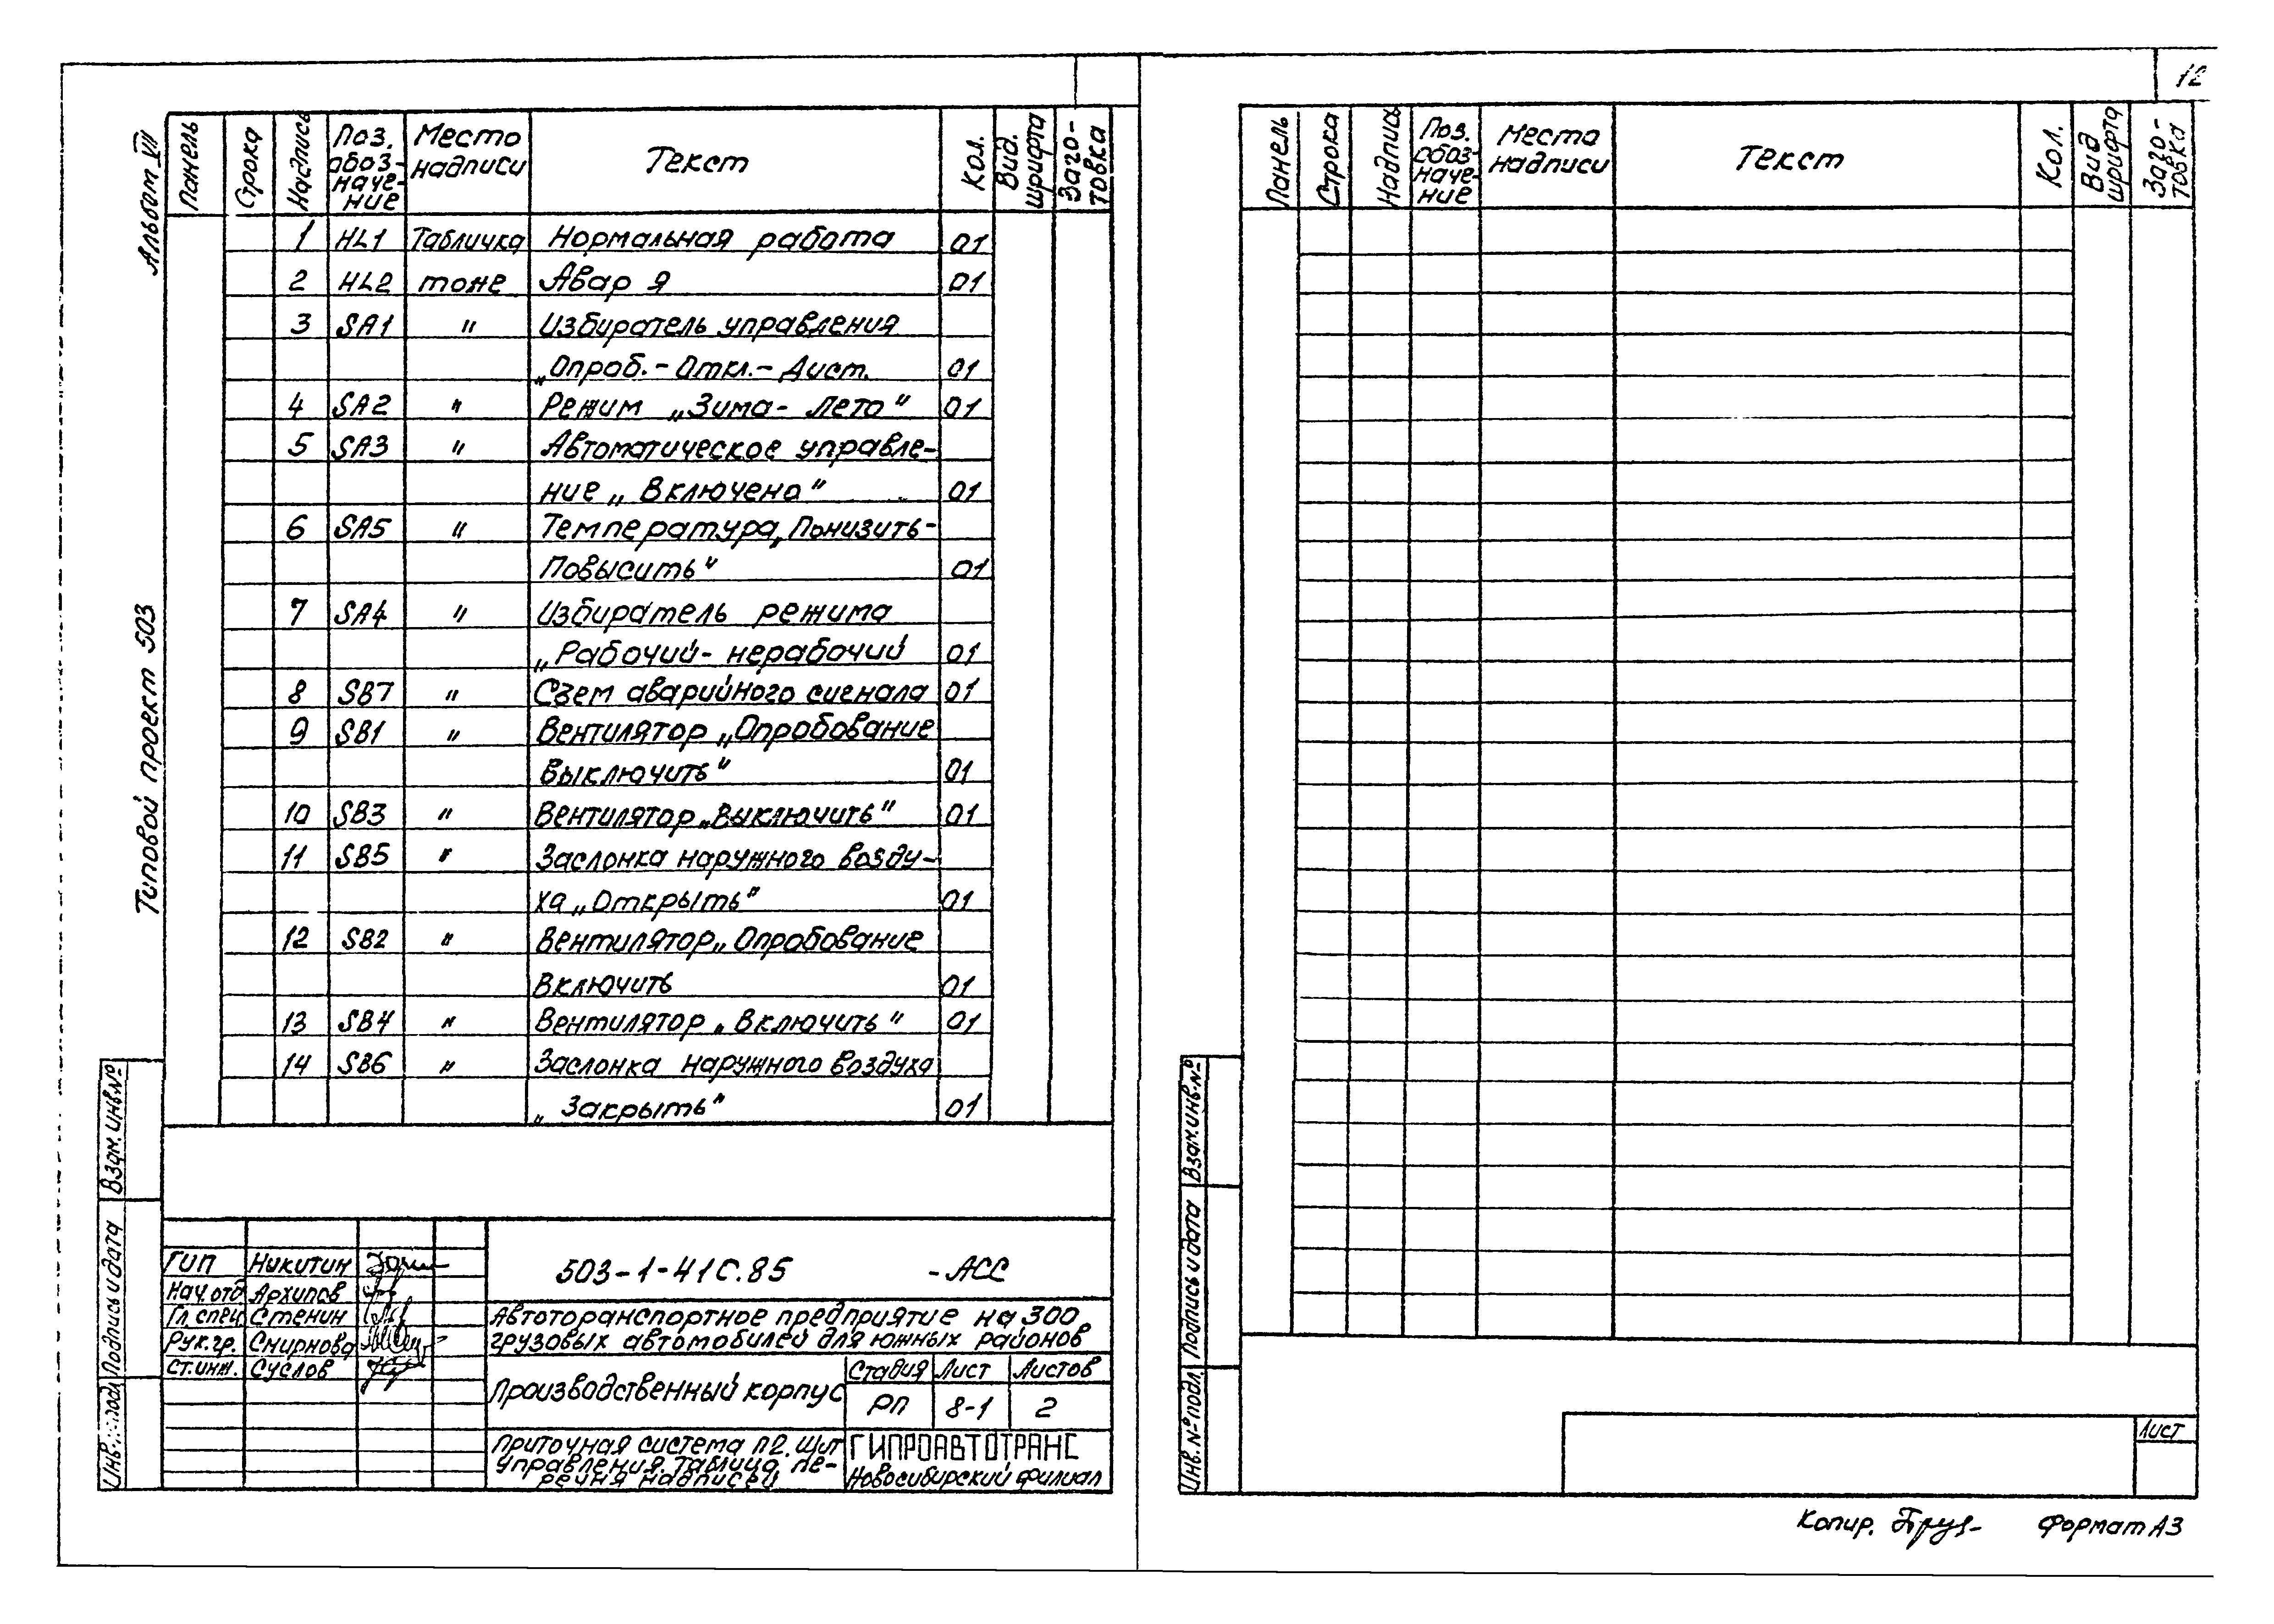 12
Альбом VII
Типовой проект 503
Панель Срока Надпись Поз. обоз-наче-ние Место надписи Текст Кол. Вид. шрифта Заго-товка
1 HL1 Табличка Нормальная работа 01
2 HL2 тоже Авар я 01
3 SA1 " Избиратель управления
„Опроб.- Откл.- Дист. 01
4 SA2 " Режим „Зима- Лето" 01
5 SA3 " Автоматическое управле-
ние „Включено" 01
6 SA5 " Температура „Понизить-
Повысить" 01
7 SA4 " Избиратель режима
„Рабочий- нерабочий 01
8 SB7 " Съем аварийного сигнала 01
9 SB1 " Вентилятор „Опробование
Выключить" 01
10 SB3 " Вентилятор „Выключить" 01
11 SB5 " Заслонка наружного возду-
ха „Открыть" 01
12 SB2 " Вентилятор „Опробование
Включить 01
13 SB4 " Вентилятор „Включить" 01
14 SB6 " Заслонка наружного воздуха
„Закрыть" 01
Взам. инв. №
Подпись и дата
Инв. подл
ГИП Никитин
Нач. отд Архипов
Гл. спец Стенин
Рук. гр. Смирнова
Ст. инж. Суслов
503-1-41С.85 -АСС
Автоторанспортное предприятие на 300
грузовых автомобилей для южных районов
Производственный корпус
Стадия Лист Листов
РП 8-1 2
Приточная система П2. Щит
управления. Таблица пе-
речня надписей
ГИПРОАВТОТРАНС
Новосибирский филиал
Панель Строка Надпись Поз. обоз-наче-ние Место надписи Текст Кол. Вид шрифта Заго-товка
Взам. инв. №
Подпись и дата
Инв. № подл
Лист
Копир. Формат А3